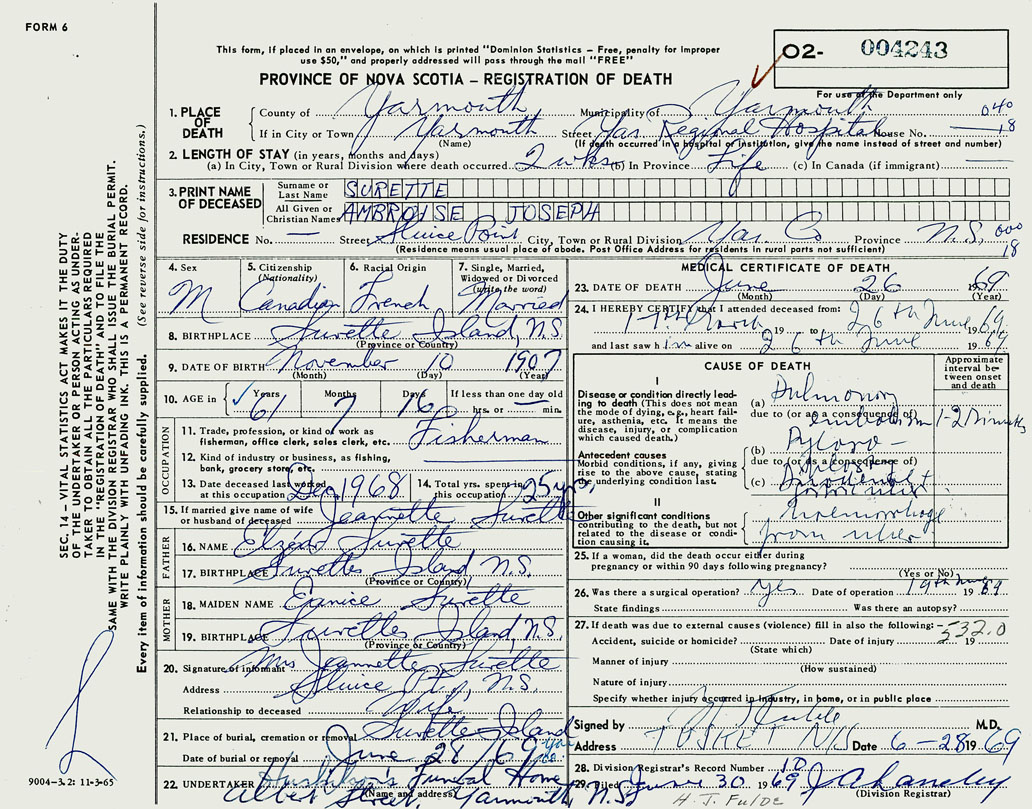 FORM 6
This form, if placed in an envelope, on which is printed "Dominion Statistics - Free, penalty for improper
use $50," and properly addressed will pass through the mail "FREE"
PROVINCE OF NOVA SCOTIA - REGISTRATION OF DEATH
O2- 004243
For use of the Department only
1. PLACE OF DEATH County of Yarmouth Municipality of Yarmouth 040
If in City or Town Yarmouth Street Yar. Regional Hospital House No. 18
(Name) (If death occurred in a hospital or institution, give the name instead of street and number)
2. LENGTH OF STAY (in years, months and days)
(a) In City, Town or Rural Division where death occurred 2 wks (b) In Province Life (c) In Canada (if immigrant) —
3. PRINT NAME OF DECEASED Surname or Last Name SURETTE
All Given or Christian Names AMBROISE JOSEPH
RESIDENCE No. — Street Sluice Point City, Town or Rural Division Yar. Co Province N.S. 000
(Residence means usual place of abode. Post Office Address for residents in rural parts not sufficient) 18
4. Sex M
5. Citizenship (Nationality) Canadian
6. Racial Origin French
7. Single, Married, Widowed or Divorced (write the word) Married
8. BIRTHPLACE Surette Island, N.S
(Province or Country)
9. DATE OF BIRTH November 10 1907
(Month) (Day) (Year)
10. AGE in Years 61 Months 7 Days 16 If less than one day old hrs. or min.
OCCUPATION
11. Trade, profession or kind of work as fisherman, office clerk, sales clerk, etc. Fisherman
12. Kind of industry or business, as fishing, bank, grocery store, etc.
13. Date deceased last worked at this occupation Dec 1968 14. Total yrs. spent in this occupation 25 yrs.
15. If married give name of wife or husband of deceased Jeannette Surette
FATHER
16. NAME Elzéar Surette
17. BIRTHPLACE Surettes Island N.S.
(Province or Country)
MOTHER
18. MAIDEN NAME Eunice Surette
19. BIRTHPLACE Surettes Island, N.S.
(Province or Country)
20. Signature of informant Mrs Jeannette Surette
Address Sluice Pt., N.S.
Relationship to deceased Wife
21. Place of burial, cremation or removal Surette Island
Date of burial or removal June 28/69
22. UNDERTAKER Funeral Home
(Name and address) Albert Street, Yarmouth, N.S.
MEDICAL CERTIFICATE OF DEATH
23. DATE OF DEATH June 26 1969
(Month) (Day) (Year)
24. I HEREBY CERTIFY that I attended deceased from:
17th March 19 to 26th June 1969
and last saw him alive on 26th June 1969
CAUSE OF DEATH
Approximate interval between onset and death
I
Disease or condition directly leading to death (This does not mean the mode of dying, e.g., heart failure, asthenia, etc. It means the disease, injury, or complication which caused death.)
(a) Pulmonary
due to (or as a consequence of) embolism 1-2 Minutes
Antecedent causes
Morbid conditions, if any, giving rise to the above cause, stating the underlying condition last.
(b) Pyloro-
due to (or as a consequence of)
(c)
II
Other significant conditions contributing to the death, but not related to the disease or condition causing it.
Haemorrhage
from ulcer
25. If a woman, did the death occur either during pregnancy or within 90 days following pregnancy?
(Yes or No)
26. Was there a surgical operation? Yes Date of operation 19th June 1969
State findings Was there an autopsy?
27. If death was due to external causes (violence) fill in also the following: 532.0
Accident, suicide or homicide? Date of injury 19
(State which)
Manner of injury
(How sustained)
Nature of injury
Specify whether injury occurred in industry, in home, or in public place
Signed by M.D.
Address TUSKET N.S Date 6-28 1969
28. Division Registrar's Record Number 10
29. Filed June 30 1969
(Division Registrar)
SEC. 14 - VITAL STATISTICS ACT MAKES IT THE DUTY
OF THE UNDERTAKER OR PERSON ACTING AS UNDER-
TAKER TO OBTAIN ALL THE PARTICULARS REQUIRED
IN THE REGISTRATION OF DEATH AND TO FILE THE
SAME WITH THE DIVISION REGISTRAR WHO SHALL ISSUE THE BURIAL PERMIT.
WRITE PLAINLY WITH UNFADING INK. THIS IS A PERMANENT RECORD.
Every item of information should be carefully supplied. (See reverse side for instructions.)
9004-3.2: 11-3-65